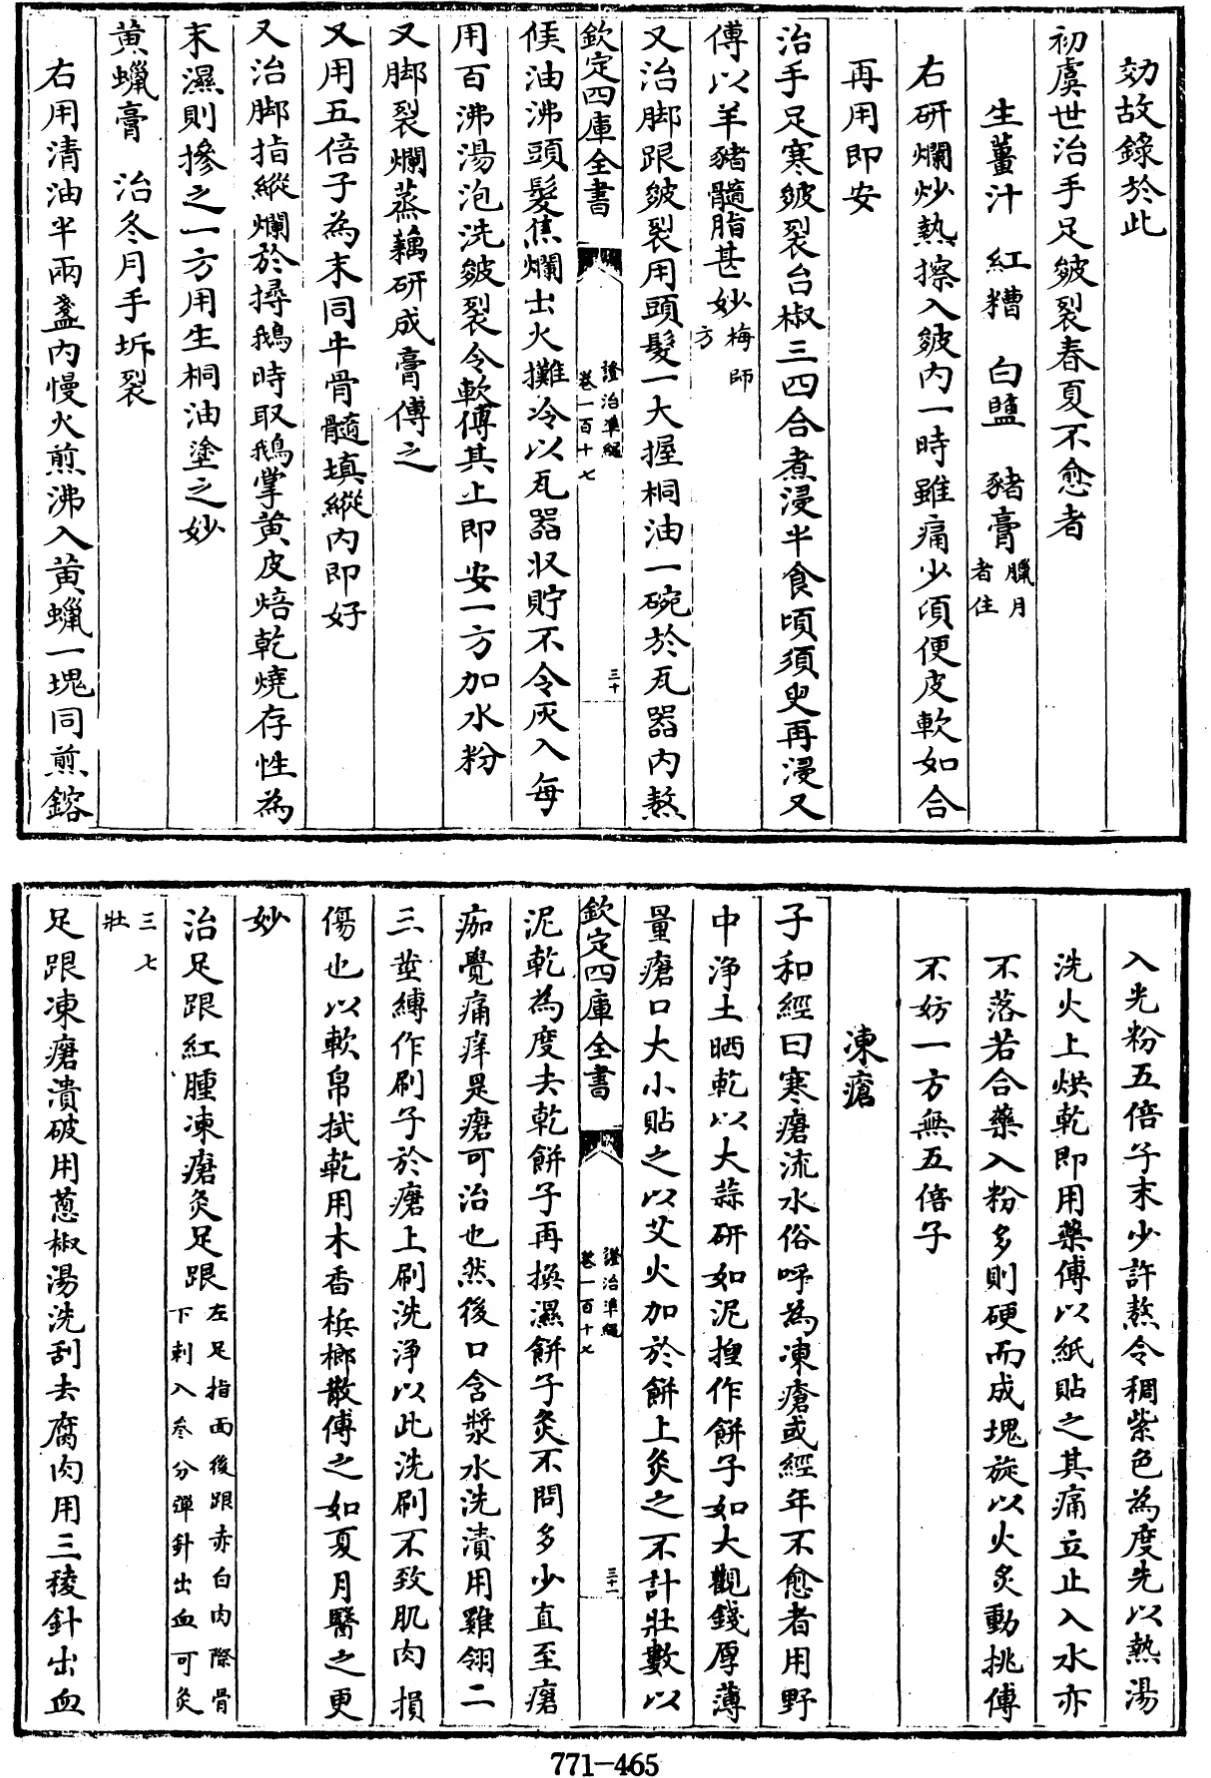 効故錄於此
初虞世治手足皴裂春夏不愈者
生薑汁　紅糟　白鹽　豬膏臘月者佳
右研爛炒熱擦入皴内一時雖痛少頃便皮軟如合
再用即安
治手足寒皴裂台椒三四合煮浸半食頃須臾再浸又
傅以羊豬髓脂甚妙梅師方
又治脚跟皴裂用頭髮一大握桐油一碗於瓦器内熬
欽定四庫全書
證治準繩
卷一百十七
三十
候油沸頭髮焦爛出火攤冷以瓦器収貯不令灰入每
用百沸湯泡洗皴裂令軟傅其上即安一方加水粉
又脚裂爛蒸藕研成膏傅之
又用五倍子為末同牛骨髓填縱内即好
又治脚指縱爛於撏鵝時取鵝掌黄皮焙乾燒存性為
末濕則摻之一方用生桐油塗之妙
黄蠟膏　治冬月手坼裂
右用清油半兩盞内慢火煎沸入黄蠟一塊同煎鎔
入光粉五倍子末少許熬令稠紫色為度先以熱湯
洗火上烘乾即用藥傅以紙貼之其痛立止入水亦
不落若合藥入粉多則硬而成塊旋以火炙動挑傅
不妨一方無五倍子
凍瘡
子和經曰寒瘡流水俗呼為凍瘡或經年不愈者用野
中浄土晒乾以大蒜研如泥揑作餅子如大觀錢厚薄
量瘡口大小貼之以艾火加於餅上灸之不計壯數以
欽定四庫全書
證治準繩
卷一百十七
三十一
泥乾為度去乾餅子再換濕餅子灸不問多少直至瘡
痂覺痛痒是瘡可治也然後口含漿水洗漬用雞翎二
三莖縛作刷子於瘡上刷洗淨以此洗刷不致肌肉損
傷也以軟帛拭乾用木香檳榔散傅之如夏月醫之更
妙
治足跟紅腫凍瘡灸足跟左足指面後跟赤白肉際骨下刺入叁分彈針出血可灸
三七壯
足跟凍瘡潰破用蔥椒湯洗刮去腐肉用三稜針出血
771-465